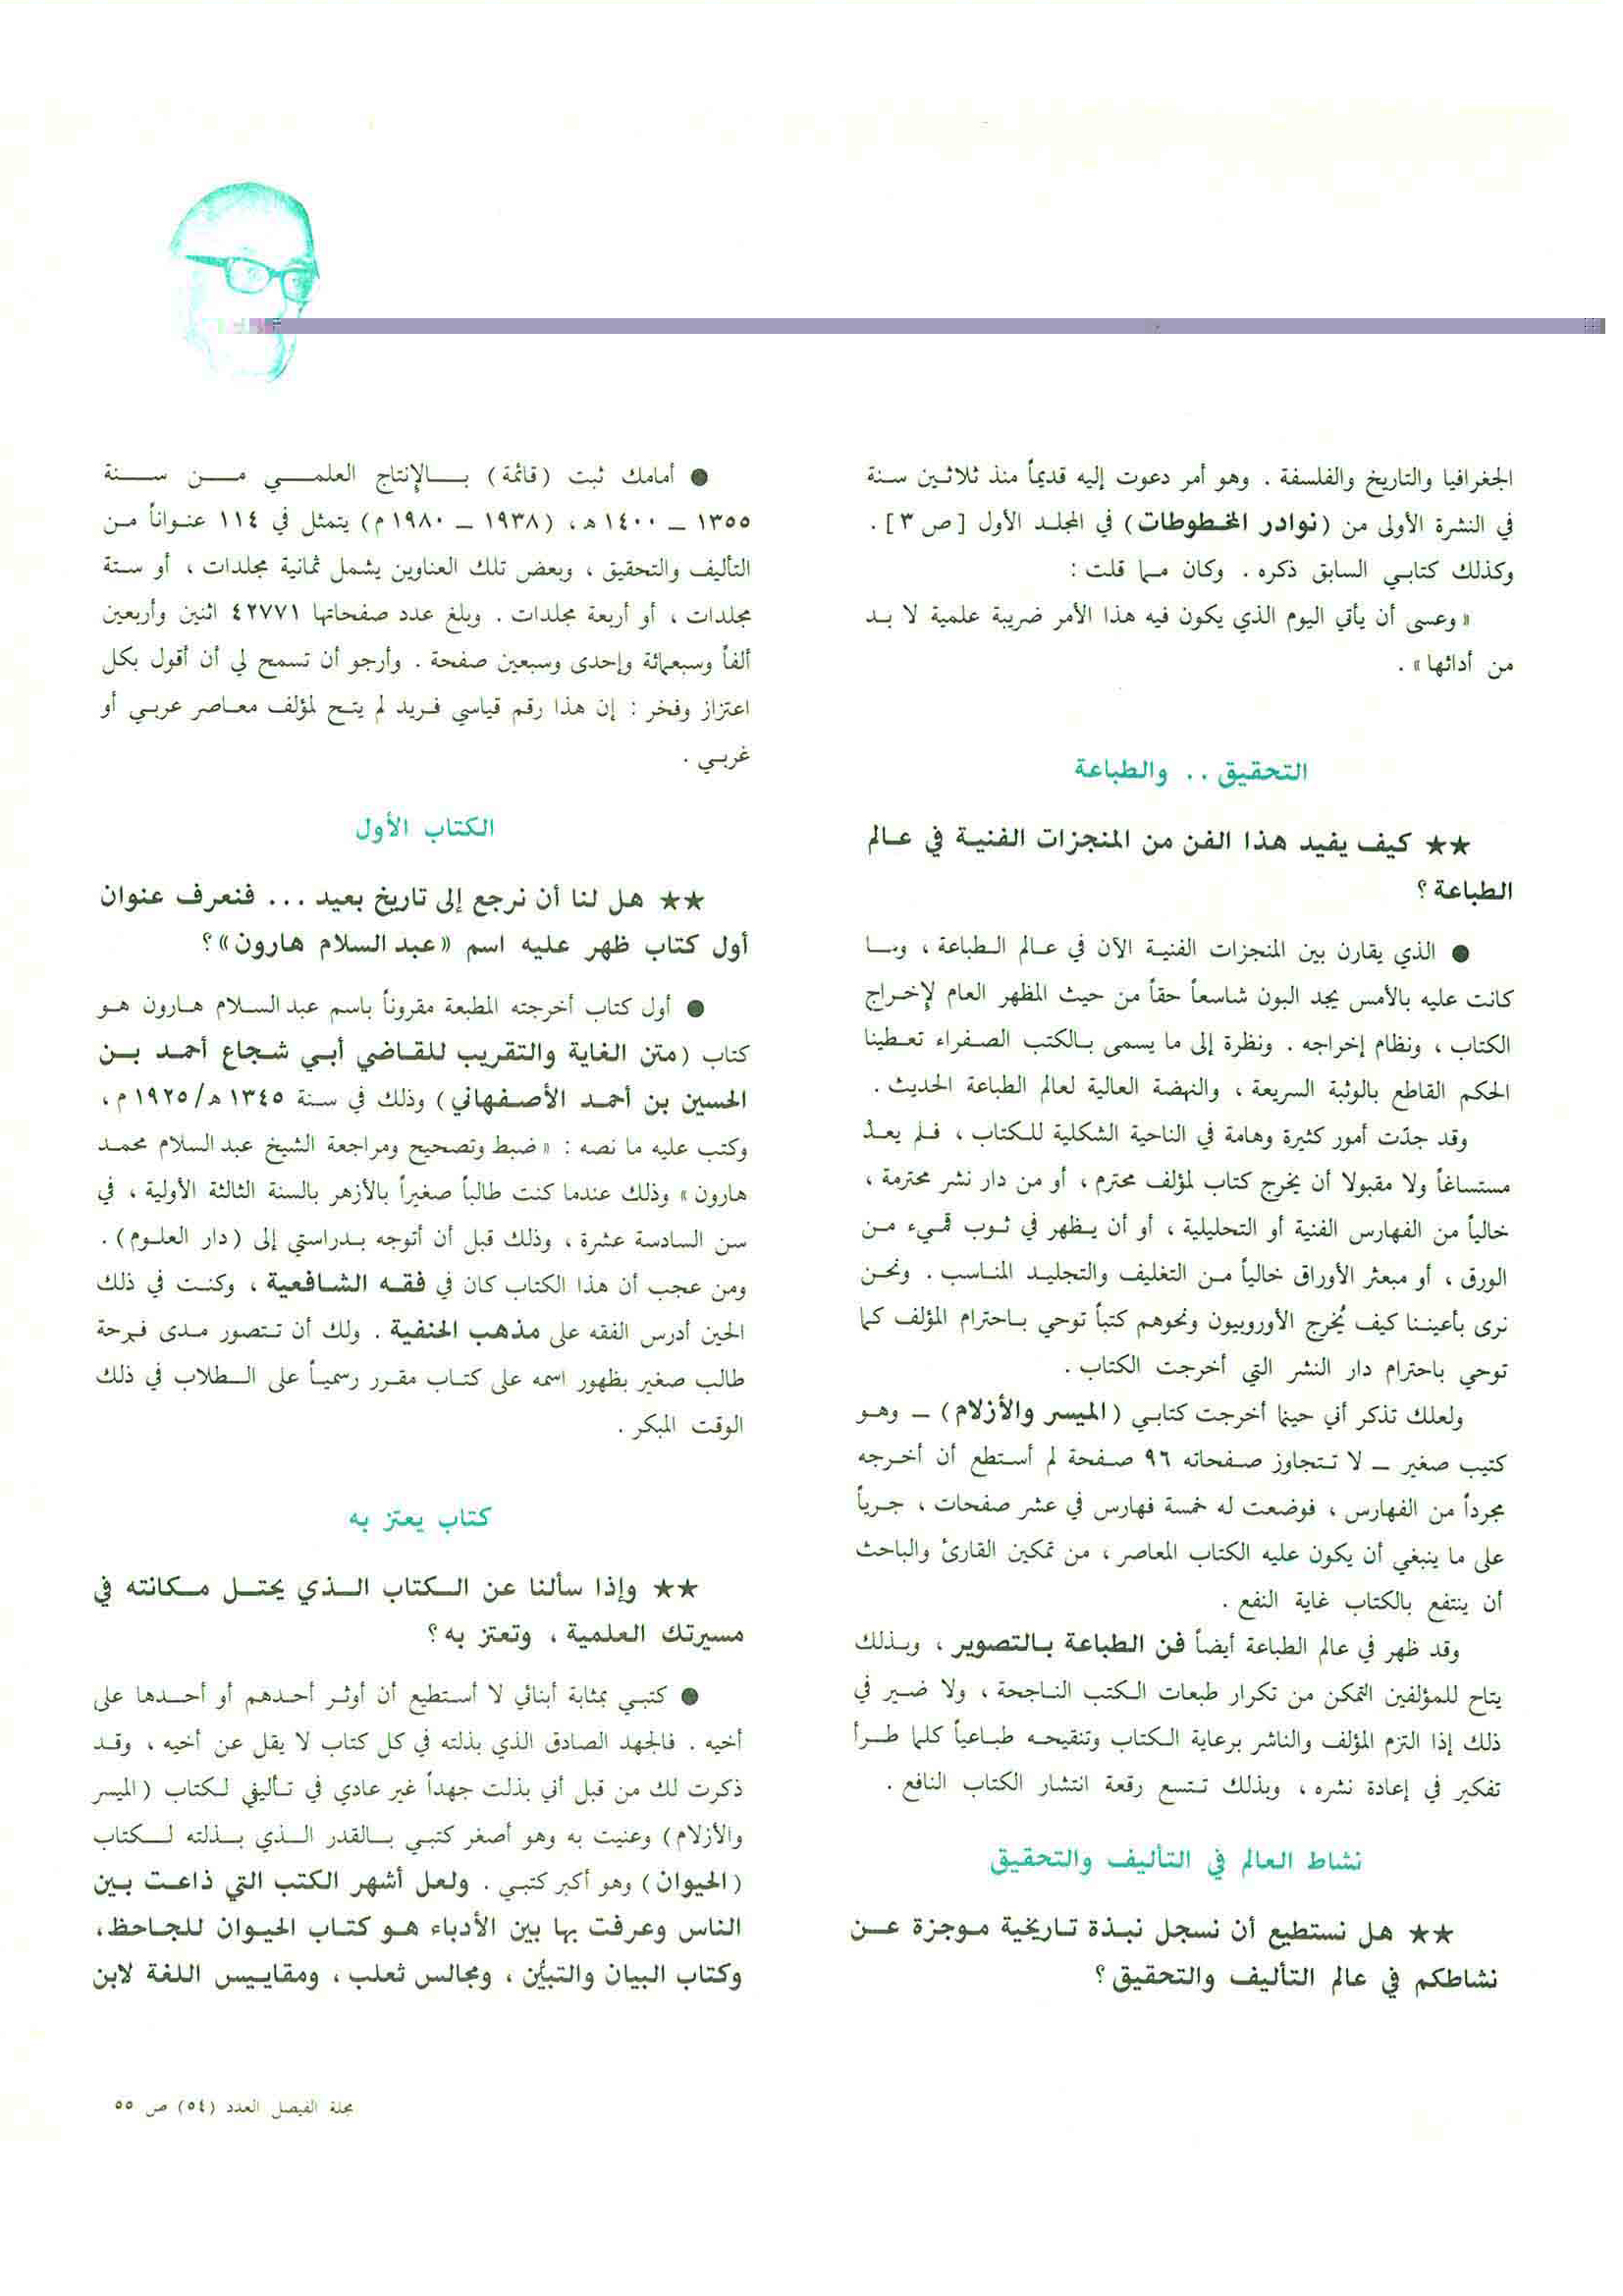 الجغرافيا والتاريخ والفلسفة . وهو أمر دعوت إليه قديماً منذ ثلاثين سنة
في النشرة الأولى من (نوادر المخطوطات) في المجلد الأول [ص ٣] .
وكذلك كتابي السابق ذكره . وكان مما قلت :
« وعسى أن يأتي اليوم الذي يكون فيه هذا الأمر ضريبة علمية لا بد
من أدائها » .
التحقيق .. والطباعة
★★ كيف يفيد هذا الفن من المنجزات الفنية في عالم
الطباعة ؟
● الذي يقارن بين المنجزات الفنية الآن في عالم الطباعة ، وما
كانت عليه بالأمس يجد البون شاسعاً حقاً من حيث المظهر العام لإخراج
الكتاب ، ونظام إخراجه . ونظرة إلى ما يسمى بالكتب الصفراء تعطينا
الحكم القاطع بالوثبة السريعة ، والنهضة العالية لعالم الطباعة الحديث .
وقد جدّت أمور كثيرة وهامة في الناحية الشكلية للكتاب ، فلم يعدْ
مستساغاً ولا مقبولا أن يخرج كتاب لمؤلف محترم ، أو من دار نشر محترمة ،
خالياً من الفهارس الفنية أو التحليلية ، أو أن يظهر في ثوب قميء من
الورق ، أو مبعثر الأوراق خالياً من التغليف والتجليد المناسب . ونحن
نرى بأعيننا كيف يُخرج الأوروبيون ونحوهم كتباً توحي باحترام المؤلف كما
توحي باحترام دار النشر التي أخرجت الكتاب .
ولعلك تذكر أني حينما أخرجت كتابي (الميسر والأزلام) – وهو
كتيب صغير – لا تتجاوز صفحاته ٩٦ صفحة لم أستطع أن أخرجه
مجرداً من الفهارس ، فوضعت له خمسة فهارس في عشر صفحات ، جرياً
على ما ينبغي أن يكون عليه الكتاب المعاصر ، من تمكين القارئ والباحث
أن ينتفع بالكتاب غاية النفع .
وقد ظهر في عالم الطباعة أيضاً فن الطباعة بالتصوير ، وبذلك
يتاح للمؤلفين التمكن من تكرار طبعات الكتب الناجحة ، ولا ضير في
ذلك إذا التزم المؤلف والناشر برعاية الكتاب وتنقيحه طباعياً كلما طرأ
تفكير في إعادة نشره ، وبذلك تتسع رقعة انتشار الكتاب النافع .
نشاط العالم في التأليف والتحقيق
★★ هل نستطيع أن نسجل نبذة تاريخية موجزة عن
نشاطكم في عالم التأليف والتحقيق ؟
● أمامك ثبت (قائمة) بالإنتاج العلمي من سنة
١٣٥٥ – ١٤٠٠ هـ ، (١٩٣٨ – ١٩٨٠ م) يتمثل في ١١٤ عنواناً من
التأليف والتحقيق ، وبعض تلك العناوين يشمل ثمانية مجلدات ، أو ستة
مجلدات ، أو أربعة مجلدات . وبلغ عدد صفحاتها ٤٢٧٧١ اثنين وأربعين
ألفاً وسبعمائة وإحدى وسبعين صفحة . وأرجو أن تسمح لي أن أقول بكل
اعتزاز وفخر : إن هذا رقم قياسي فريد لم يتح لمؤلف معاصر عربي أو
غربي .
الكتاب الأول
★★ هل لنا أن نرجع إلى تاريخ بعيد ... فنعرف عنوان
أول كتاب ظهر عليه اسم «عبد السلام هارون» ؟
● أول كتاب أخرجته المطبعة مقروناً باسم عبد السلام هارون هو
كتاب (متن الغاية والتقريب للقاضي أبي شجاع أحمد بن
الحسين بن أحمد الأصفهاني) وذلك في سنة ١٣٤٥ هـ/١٩٢٥ م ،
وكتب عليه ما نصه : « ضبط وتصحيح ومراجعة الشيخ عبد السلام محمد
هارون » وذلك عندما كنت طالباً صغيراً بالأزهر بالسنة الثالثة الأولية ، في
سن السادسة عشرة ، وذلك قبل أن أتوجه بدراستي إلى (دار العلوم) .
ومن عجب أن هذا الكتاب كان في فقه الشافعية ، وكنت في ذلك
الحين أدرس الفقه على مذهب الحنفية . ولك أن تتصور مدى فرحة
طالب صغير بظهور اسمه على كتاب مقرر رسمياً على الطلاب في ذلك
الوقت المبكر .
كتاب يعتز به
★★ وإذا سألنا عن الكتاب الذي يحتل مكانته في
مسيرتك العلمية ، وتعتز به ؟
● كتبي بمثابة أبنائي لا أستطيع أن أوثر أحدهم أو أحدها على
أخيه . فالجهد الصادق الذي بذلته في كل كتاب لا يقل عن أخيه ، وقد
ذكرت لك من قبل أني بذلت جهداً غير عادي في تأليفي لكتاب (الميسر
والأزلام) وعنيت به وهو أصغر كتبي بالقدر الذي بذلته لكتاب
(الحيوان) وهو أكبر كتبي . ولعل أشهر الكتب التي ذاعت بين
الناس وعرفت بها بين الأدباء هو كتاب الحيوان للجاحظ ،
وكتاب البيان والتبيُّن ، ومجالس ثعلب ، ومقاييس اللغة لابن
مجلة الفيصل العدد (٥٤) ص ٥٥